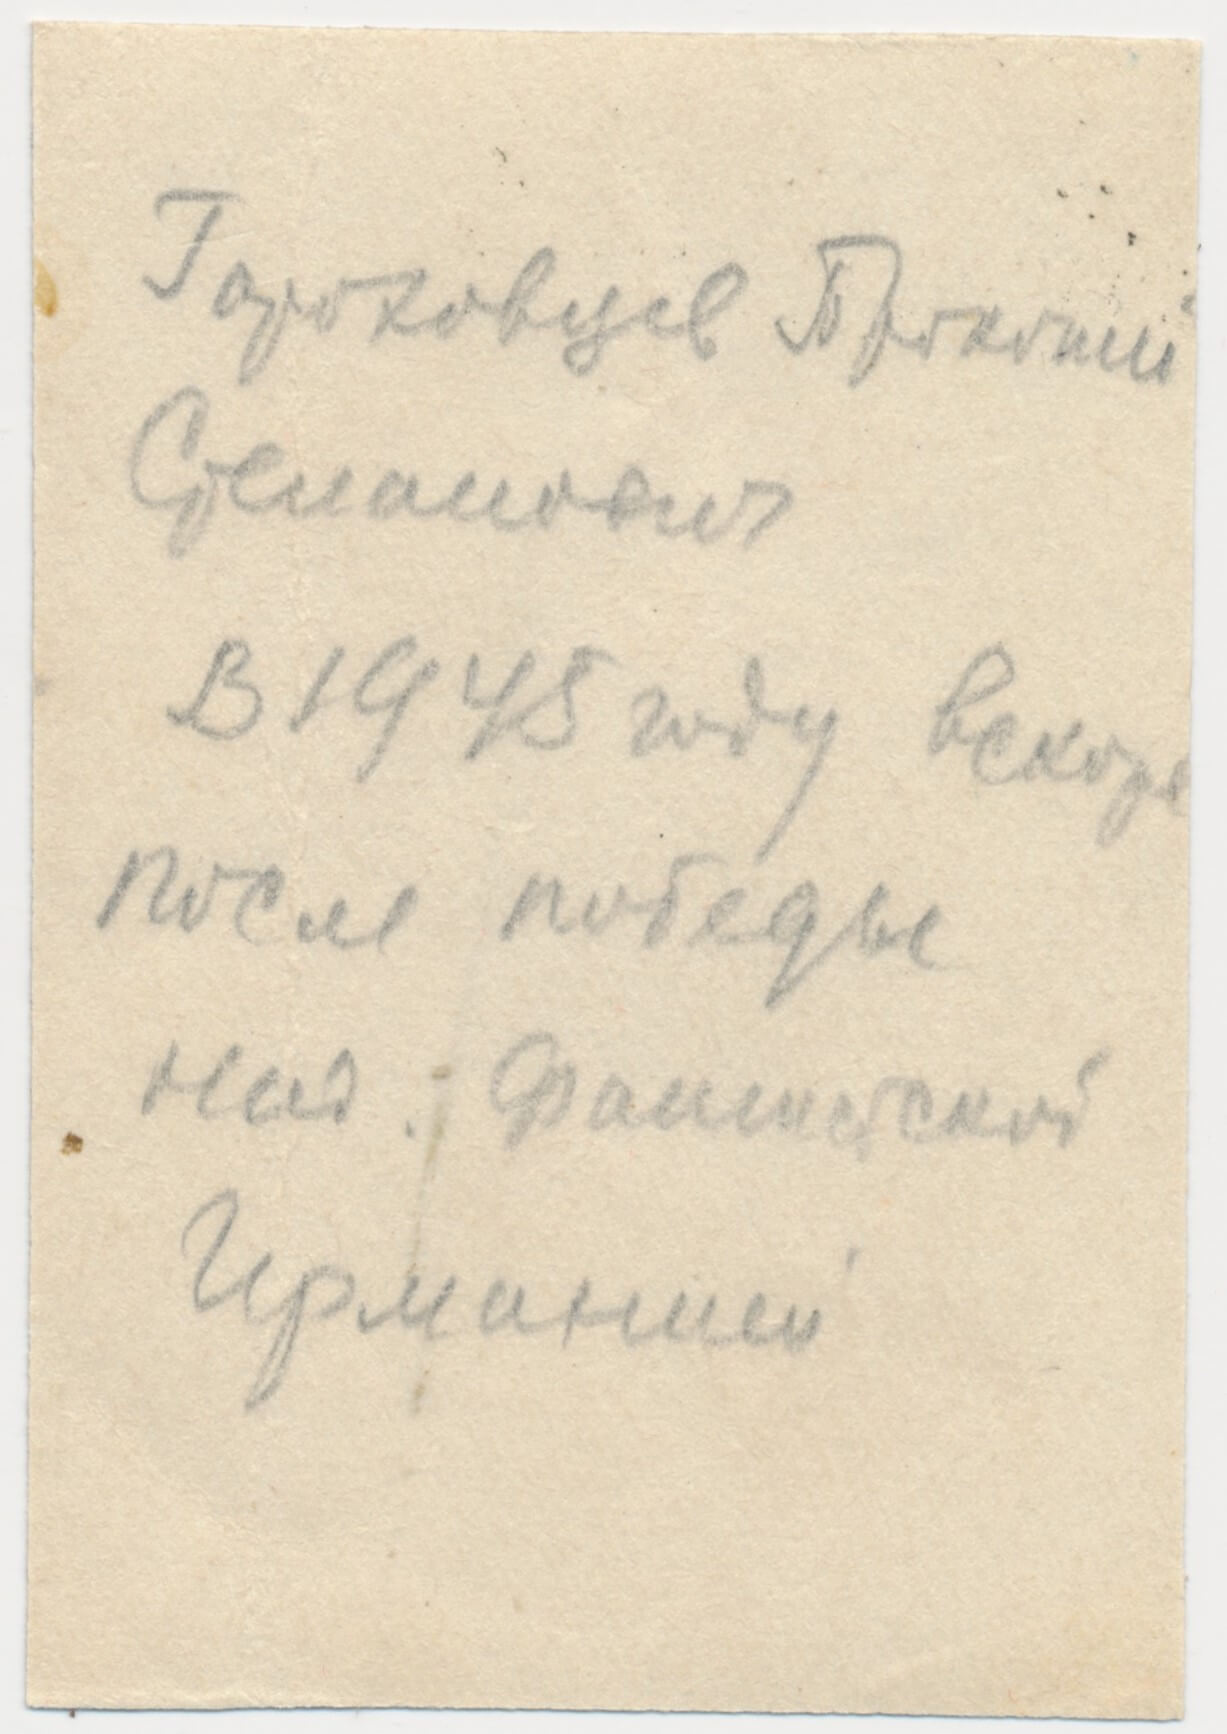 Гороховцев Прокопий
Степанович
В 1945 году вскоре
после победы
над Фашистской
Германией